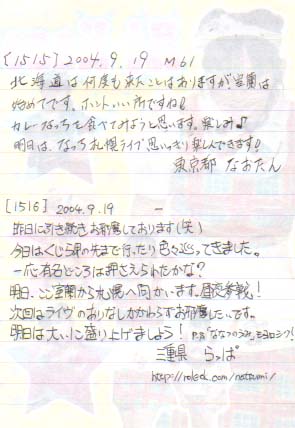 [1515] 2004.9.19 M61
北海道は何度も来たことはありますが室蘭は
始めてです。ホントいい所ですね!
カレーなっちを食べてみようと思います。楽しみ♪
明日は、なっち札幌ライブ思いっきり楽しんできます!
東京都 なおたん
[1516] 2004.9.19 ー
昨日に引き続きお邪魔しております(笑)
今日はくじら岬の先まで行ったり色々巡ってきました。
一応有名どころは押さえられたかな?
明日、ここ室蘭から札幌へ向かいます。昼夜参戦!
次回はライヴのありなしかかわらずお邪魔したいです。
明日は大いに盛り上げましょう! P.S.「ななつのうみ」もヨロシク!
三重県 らっぱ